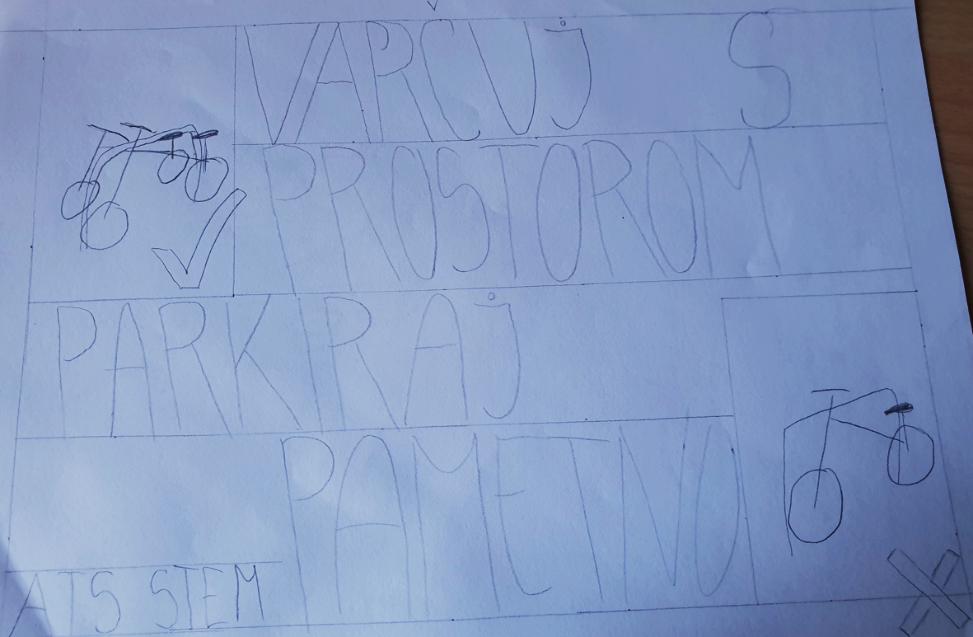 VARČUJ S
PROSTOROM
PARKIRAJ
PAMETNO
ATS STEM